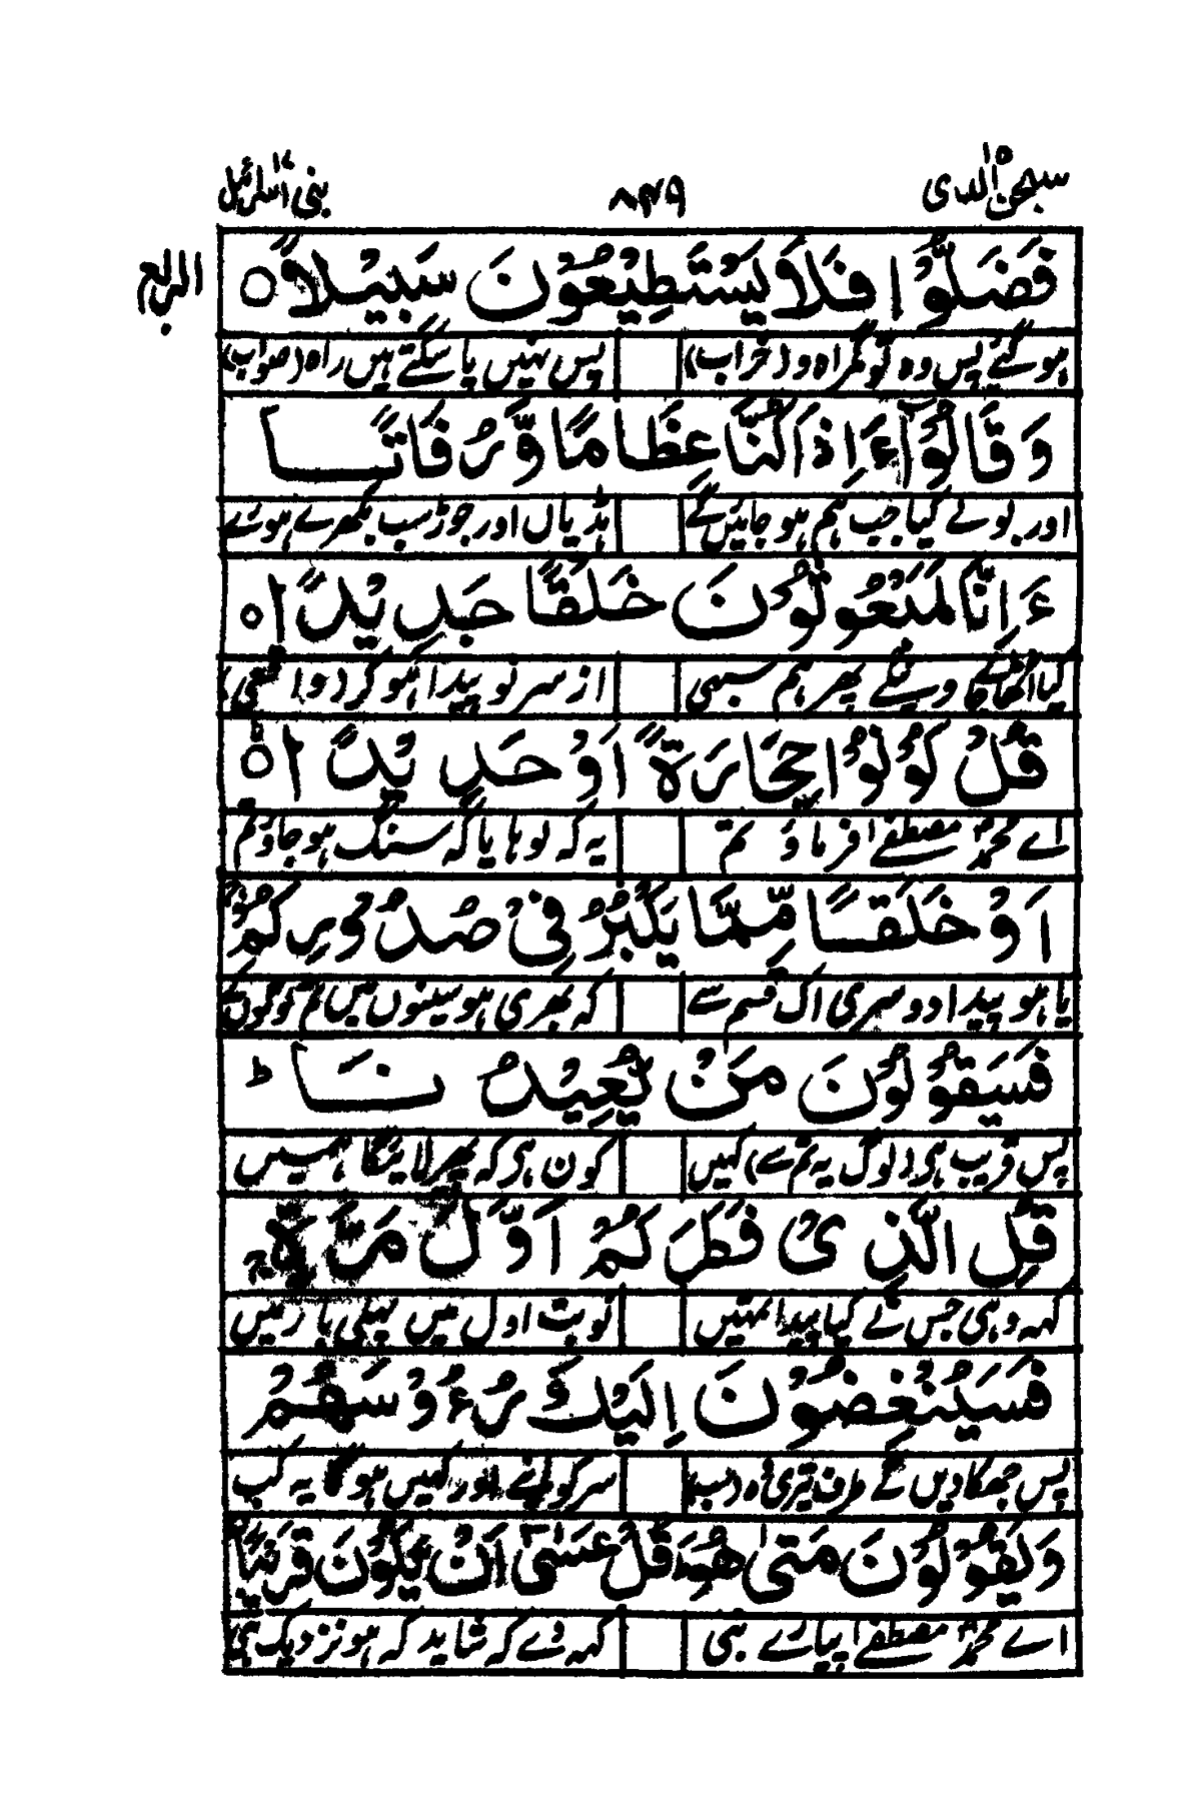 سبحن الذی ۱۵
۸۴۹
بنی اسرائیل ۱۷
الربع
فَضَلُّوْا فَلَا يَسْتَطِيْعُوْنَ سَبِيْلًا ○
ہو گئے پس وہ گمراہ و (خراب) پس نہیں پا سکتے ہیں راہ (صواب)
وَقَالُوْٓا ءَاِذَا كُنَّا عِظَامًا وَّرُفَاتًا
اور بولے کیا جب ہم ہو جائیں گے ہڈیاں اور جوڑ سب بکھرے ہوئے
ءَاِنَّا لَمَبْعُوْثُوْنَ خَلْقًا جَدِيْدًا ○
کیا اٹھائے جاویں گے پھر ہم سبھی از سر نو پیدا ہو کر (واقعی)
قُلْ كُوْنُوْا حِجَارَةً اَوْ حَدِيْدًا ○
اے محمدؐ مصطفےٰ فرماؤ تم یہ کہ لوہا یا کہ سنگ ہو جاؤ تم
اَوْ خَلْقًا مِّمَّا يَكْبُرُ فِىْ صُدُوْرِكُمْ
یا ہو پیدا دوسری اک قسم سے کہ بھری ہو سینوں میں تم لوگوں کے
فَسَيَقُوْلُوْنَ مَنْ يُّعِيْدُنَا ط
پس قریب ہی (لوگ یہ تم سے) کہیں کون ہی کہ پھر لائیگا ہمیں
قُلِ الَّذِىْ فَطَرَكُمْ اَوَّلَ مَرَّةٍ
کہہ وہی جس نے کیا پیدا تمہیں نوبت اول میں پہلی بار میں
فَسَيُنْغِضُوْنَ اِلَيْكَ رُءُوْسَهُمْ
پس جھکا دیں گے طرف تیری وہ (سب) سر کو اپنے اور کہیں ہوگا یہ کب
وَيَقُوْلُوْنَ مَتٰى هُوَ قُلْ عَسٰٓى اَنْ يَّكُوْنَ قَرِيْبًا
اے محمدؐ مصطفےٰ پیارے نبی کہہ دے کہ شاید کہ ہو نزدیک ہی